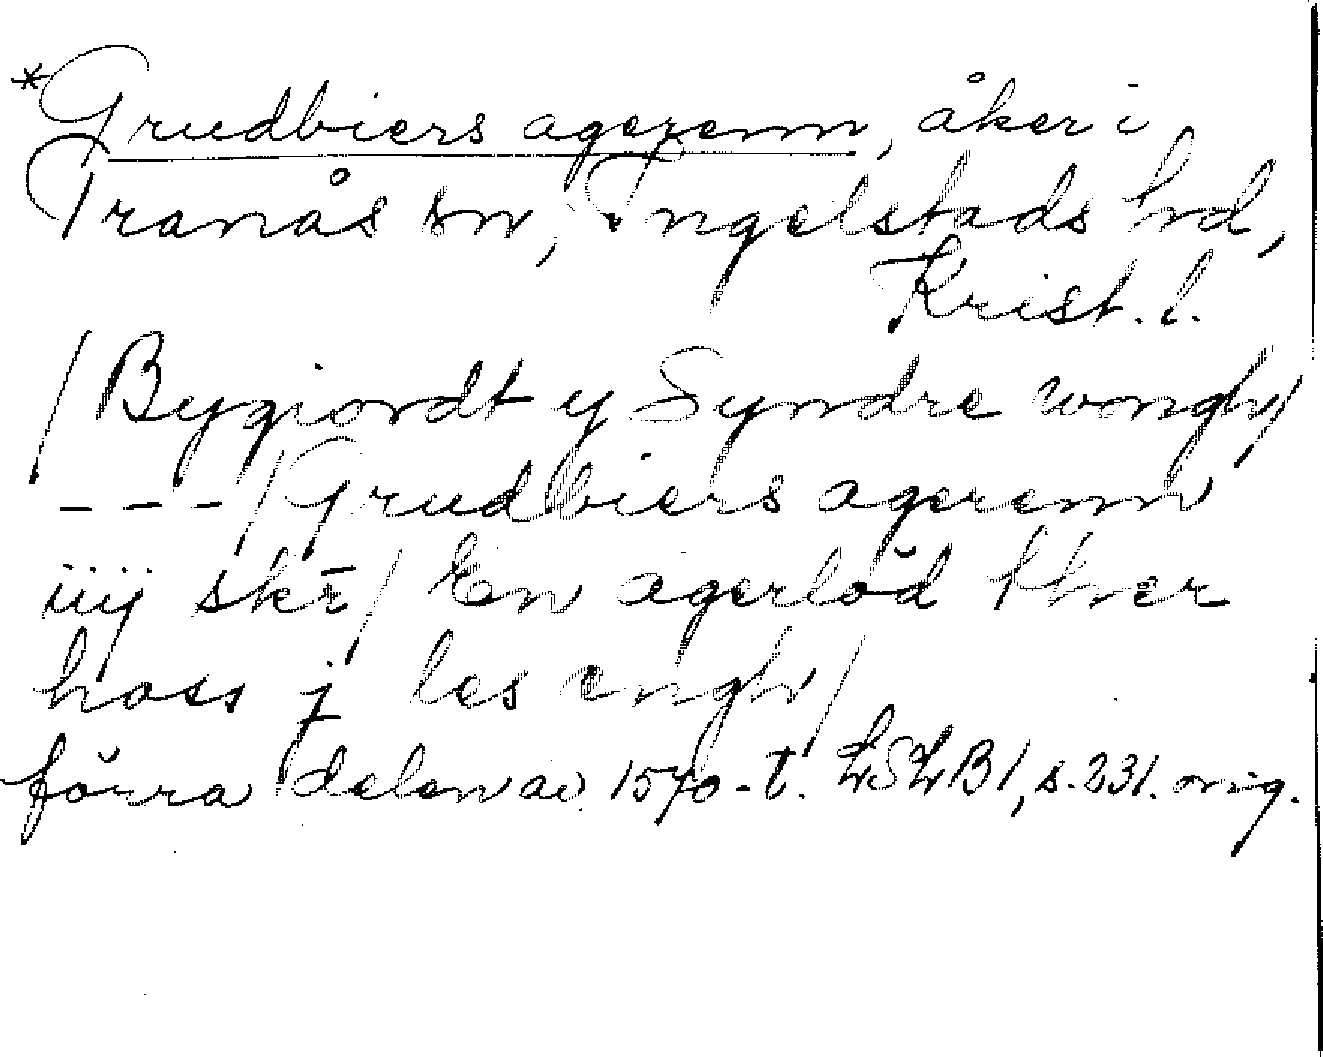 *Grudbiers agerenn, åker i
Tranås sn, Ingelstads hd,
Krist. l.
/Bygiordt y Syndre wongh/
- - - /Grudbiers agerenn
iiij skr̄/ En agerlöd ther
hoss j les engh/
förra delen av 1570-t. LSLB1, s. 231. orig.